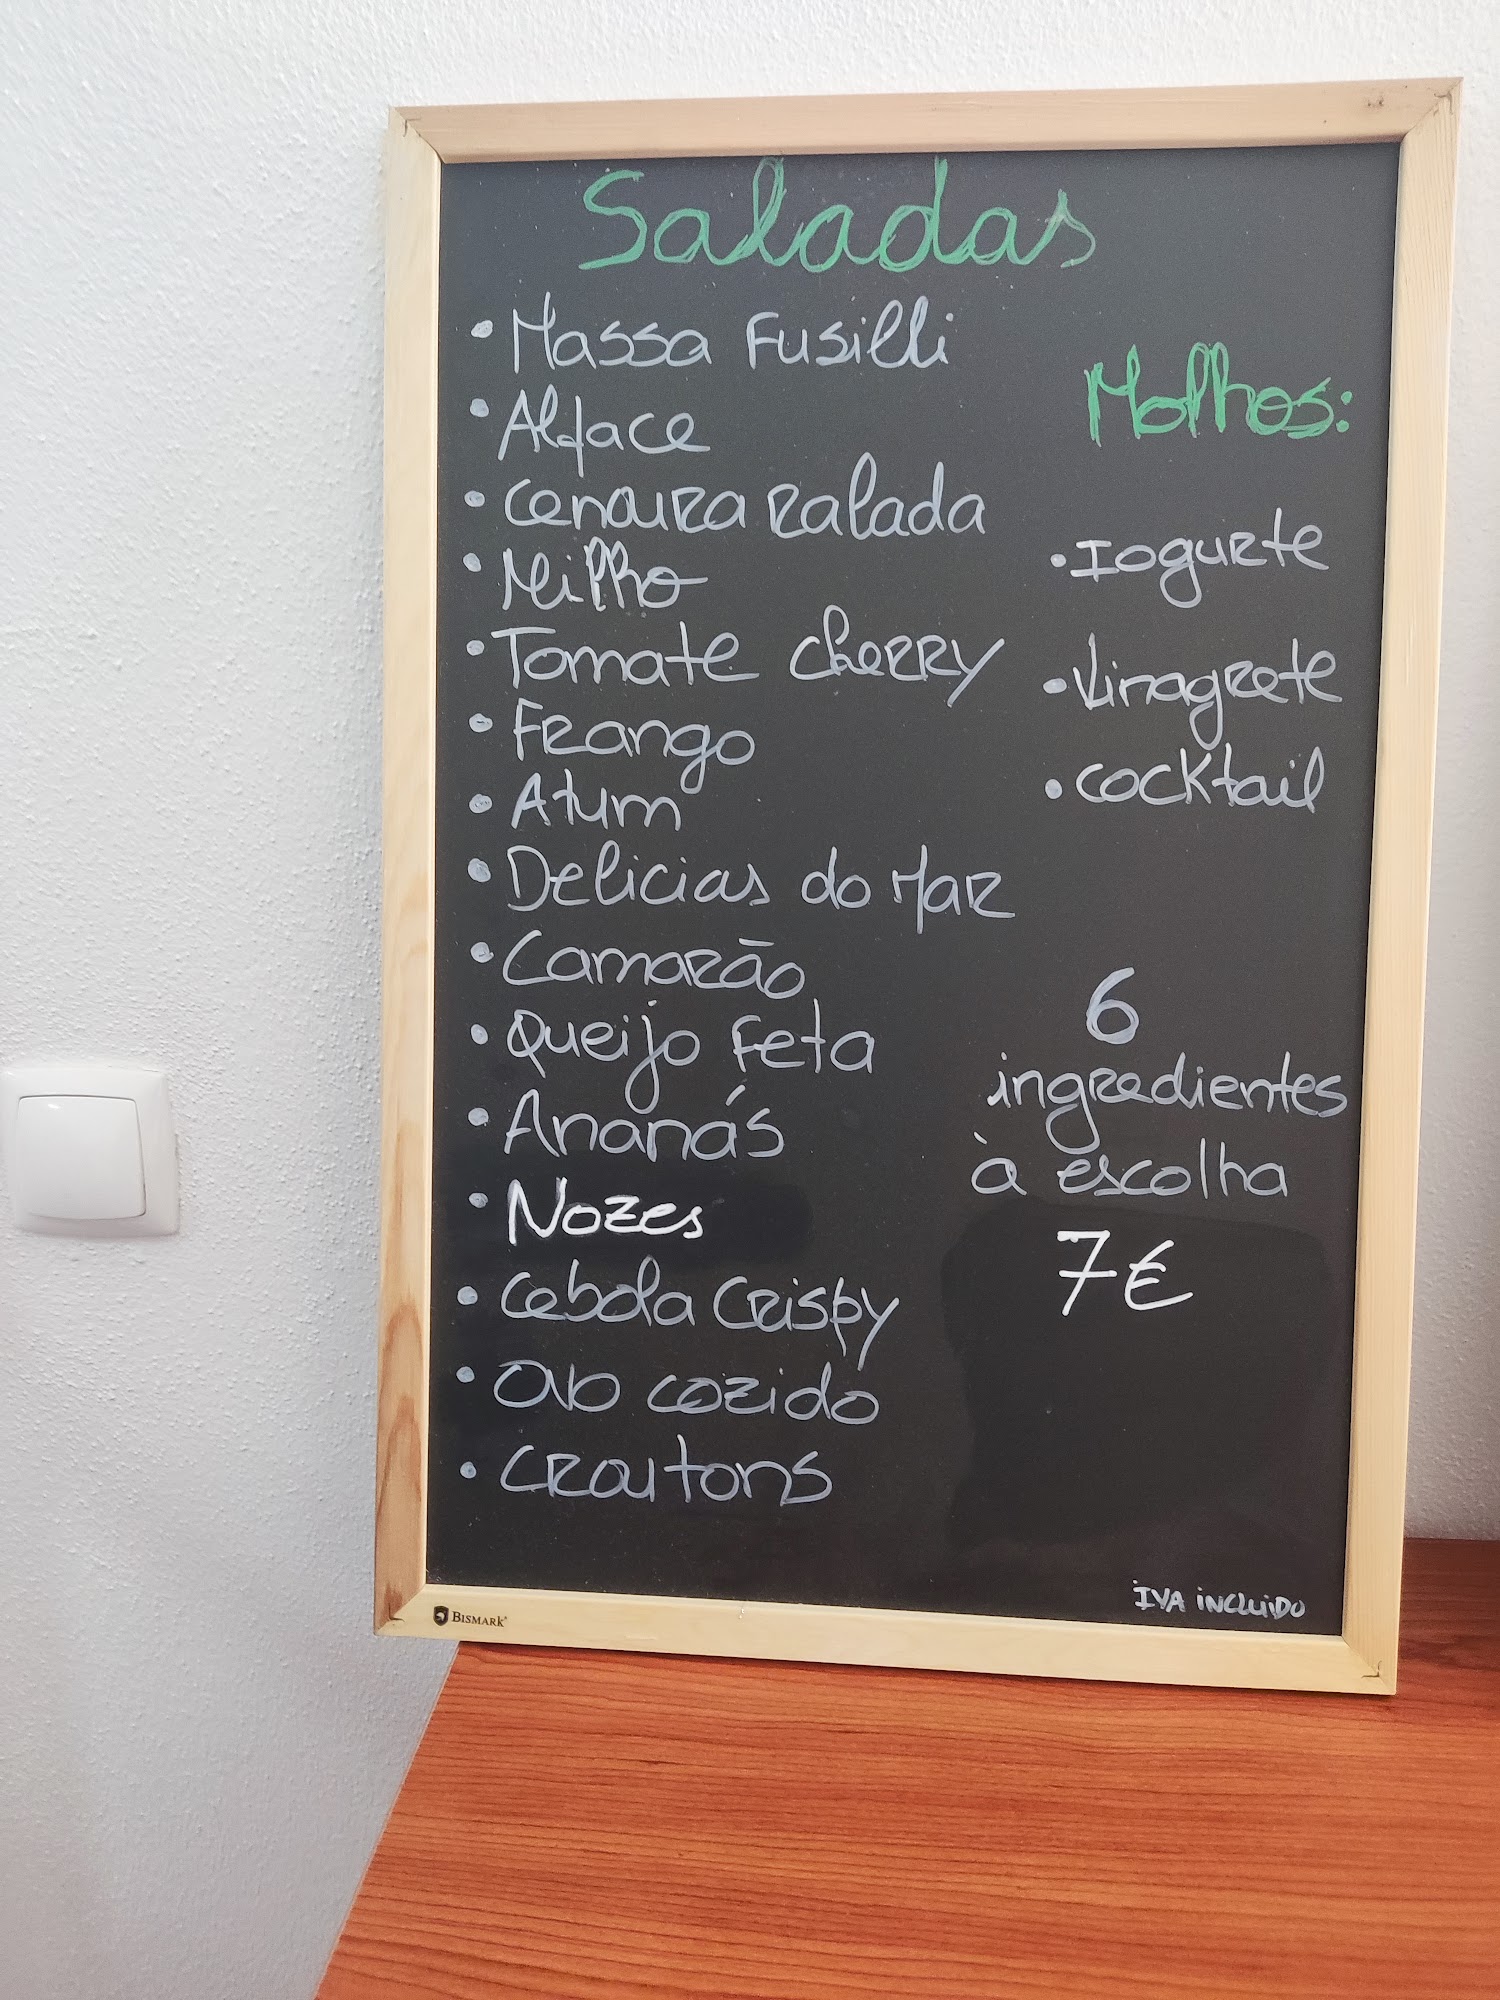 Saladas
• Massa Fusilli
• Alface
• Cenoura ralada
• Milho
• Tomate cherry
• Frango
• Atum
• Delicias do Mar
• Camarão
• Queijo Feta
• Ananás
• Nozes
• Cebola Crispy
• Ovo cozido
• Croutons
Molhos:
• Iogurte
• Vinagrete
• cocktail
6
ingredientes
à escolha
7€
IVA INCLUIDO
BISMARK®